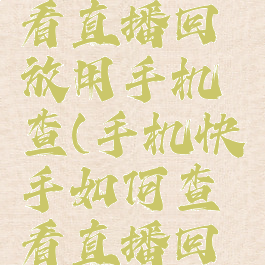 看直播回
放用手机
查(手机快
手如何查
看直播回